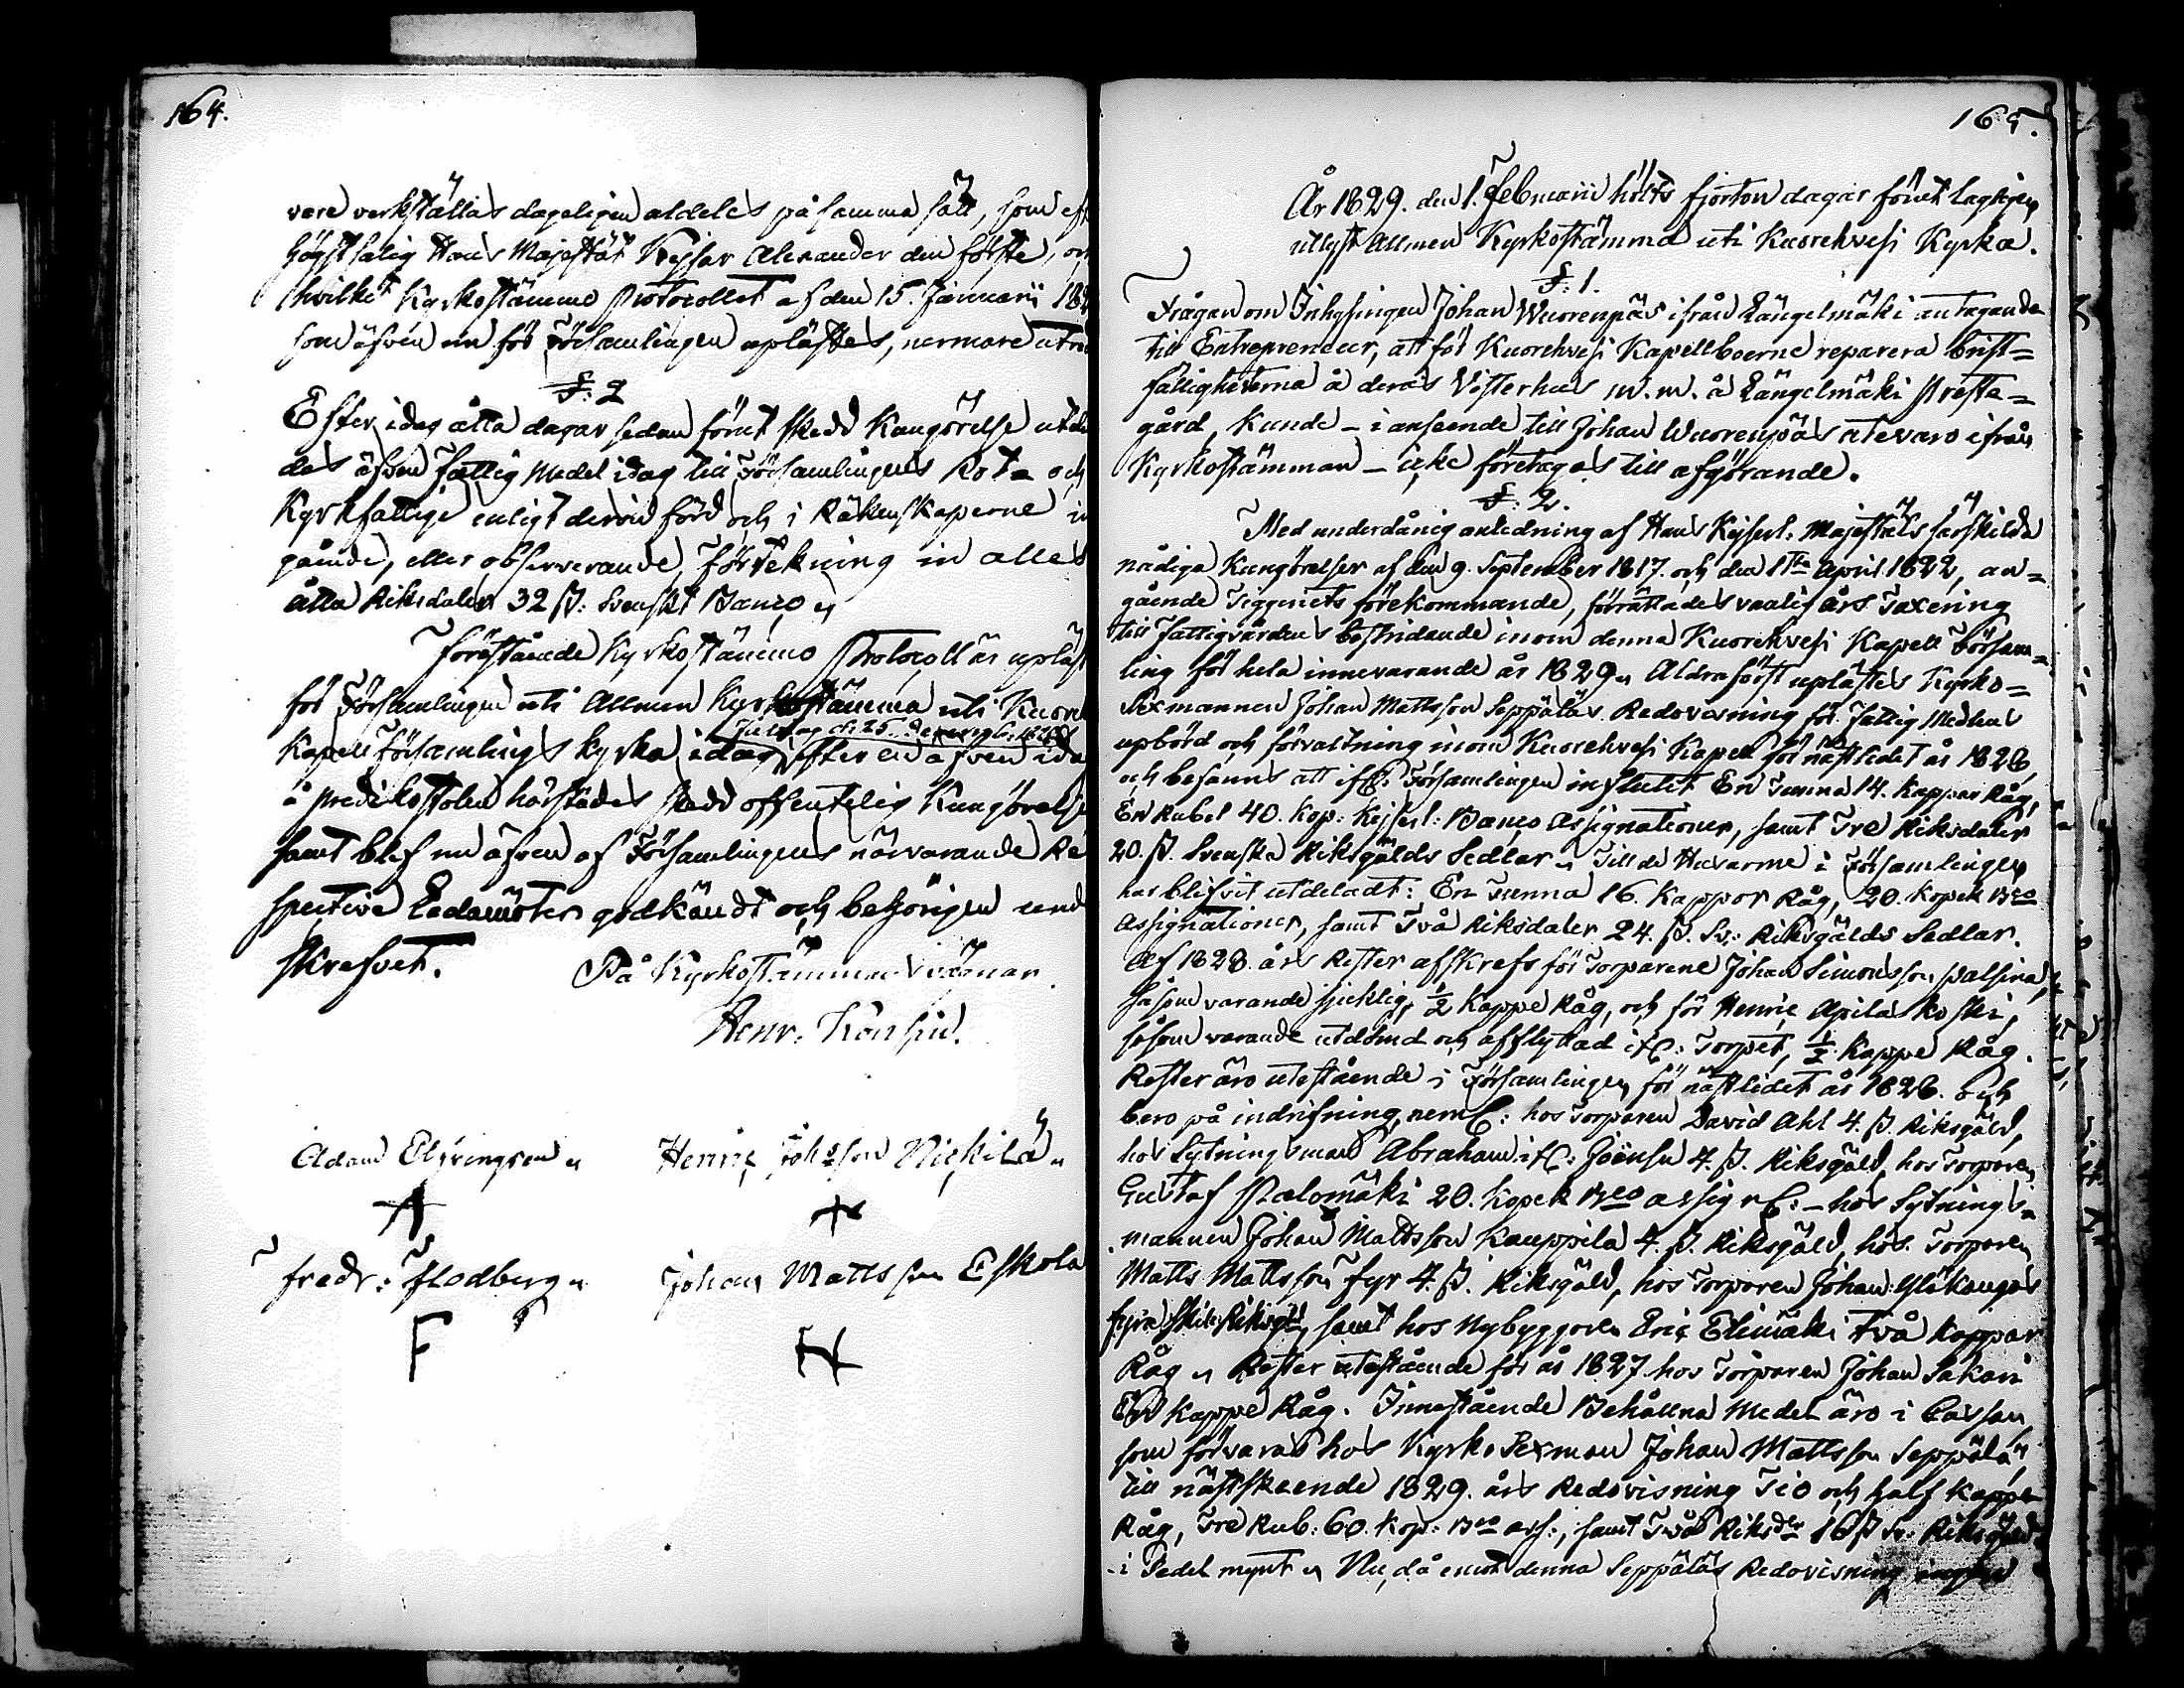 164.
vare verkställas dageligen aldeles på samma sätt, som
högstsalig Hans Majestät Kejsar Alexander den förste, och
hvilket Kyrkostämmo Protocollet af den 15. Januarii 182
som äfven nu för Församlingen uplästes, närmare
§. 2
Efter idag åtta dagar sedan förut skedd Kungörelse utde
des äfven Fattig Medel idag till Församlingens Rota och
Kyrkfattige enligt deröfver förd och i Räkenskaperne
gående, eller observerande, Förtekning in alles
åtta Riksdaler 32 ß: Svenskt Banco
Förestående Kyrkostämmo Protocoll är upläst
för Församlingen uti Allmen Kyrkostämma uti Kuore
Juledag d: 25. December 1828
Kapell Församlings kyrka idag, efter en äfven ida
å predikostolen härstädes skedd offentelig Kungörelse
samt blef nu äfven af Församlingens närvarande Re
spective Ledamöter godkändt och behörigen und
skrefvet.
På Kyrkostämmans vägnar
Henr.
Adam Elfvingren
Henric Johsson Niskilä
Fredr: Flodberg
Johan Mattsson Eskola
F
165.
År 1829. den 1. Februarii hölts fjorton dagar förut laglig
utlyst Allmen Kyrkostämma uti Kuorehvesi Kyrka.
§. 1.
Frågan om Inhysingen Johan Wuorenpäs ifrån Längelmäki antagande
till Entrepreneur, att för Kuorehvesi Kapellboerne reparera brist=
fälligheterna å deras Visterhus m.m. å Längelmäki Preste=
gård, kunde - i anseende till Johan Wuorenpäs utevaro ifrån
Kyrkostämman - icke företagas till afgörande.
§. 2.
Med underdånig anledning af Hans Kejserl: Majestäts särskilda
nådiga Kungörelser af den 9. September 1817. och den 1ste April 1822, an=
gående Tiggeriets förekommande, förrättades vanlig års Taxering
till Fattigvårdens bestridande inom denna Kuorehvesi Kapell Försam=
ling för hela innevarande år 1829. Aldraförst uplästes Kyrko=
Sexmannen Johan Mattsson Seppäläs Redovisning för Fattig Medlens
upbörd och förvaltning inom Kuorehvesi Kapell för nästledit år 1828,
och befanns att ifr: Församlingen influtit En Tunna 14. Kappar Råg,
En Rubel 40. Kop: Kejserl: Banco Assignationer, samt Tre Riksdaler
20. ß. Svenska Riksgälds Sedlar. Till de Husarme i Församlingen
har blifvit utdeladt: En Tunna 16. Kappor Råg, 20. Kopek Bco
Assignationer, samt Två Riksdaler 24. ß. Sv: Riksgälds Sedlar.
Af 1828. års Rester afskrefs för Torparene Johan Simonsson Palsina,
såsom varande sjuklig, 1/2 Kappe Råg, och för Henric Apilas koski,
såsom varande utdömd och afflyttad ifr: Torpet, 1/2 Kappe Råg.
Rester äro utestående i Församlingen för nästlidet år 1828. och
bero på indrifning, neml: hos Torparen David Ahl 4. ß. Riksgäld,
hos Sytningsman Abraham ifr: Joensu 4. ß. Riksgäld, hos Torparen
Gustaf Palomäki 20. Kopek Bco assign: - hos Sytnings=
mannen Johan Mattsson Kauppila 4. ß. Riksgäld, hos Torparen
Matts Mattsson Fyr 4. ß. Riksgäld, hos Torparen Johan Yläkangas
fyra Skill: Riksg:, samt hos Nybyggaren Eric Elimäki två Kappar
Råg. Rester utestående för år 1827 hos Torparen Johan Sakari
En Kappe Råg. Innestående Behållna Medel äro i Cassan,
som förvaras hos Kyrko Sexman Johan Mattsson Seppälä,
till nästskeende 1829. års Redovisning Tio och half Kappe
Råg, Tre Rub: 60. Kop: Bco ass:, samt Två Riksdr 16 ß Sv: Riksgäld
i Sedel mynt. Nu, då emot denna Seppäläs Redovisning